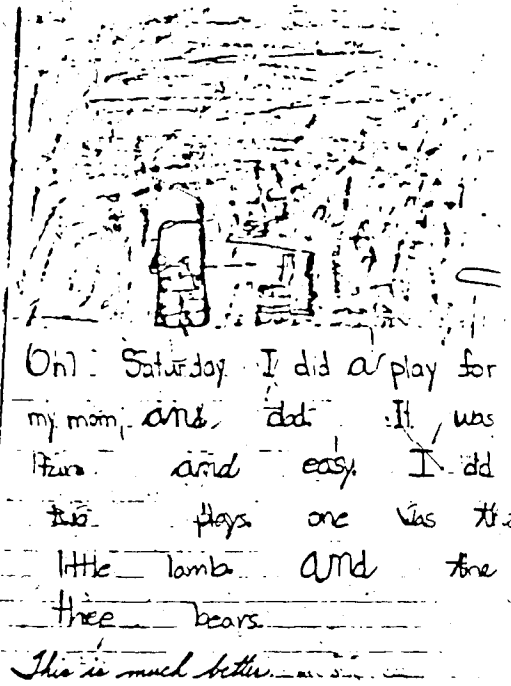 On Saturday I did a play for
my mom, and dad. It was
fun and easy. I did
two plays. one was the
little lamb and the
three bears.
This is much better.